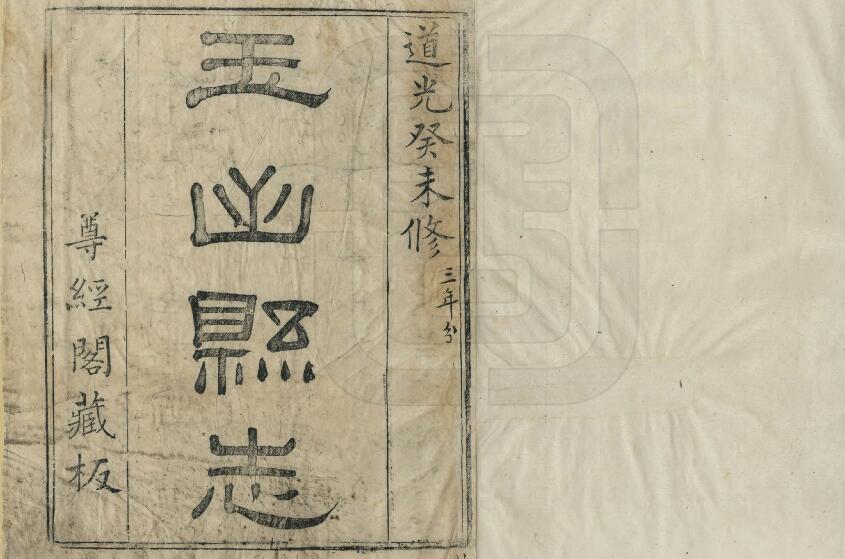 道光癸未修三年分
玉山縣志
尊經閣藏板